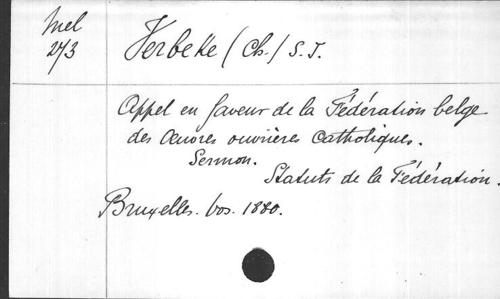 Mel
27/3
Verbeke (Ch.) S. J.
Appel en faveur de la Fédération belge
des Œuvres ouvrières Catholiques.
Sermon.
Statuts de la Fédération.
Bruxelles. Vos. 1880.